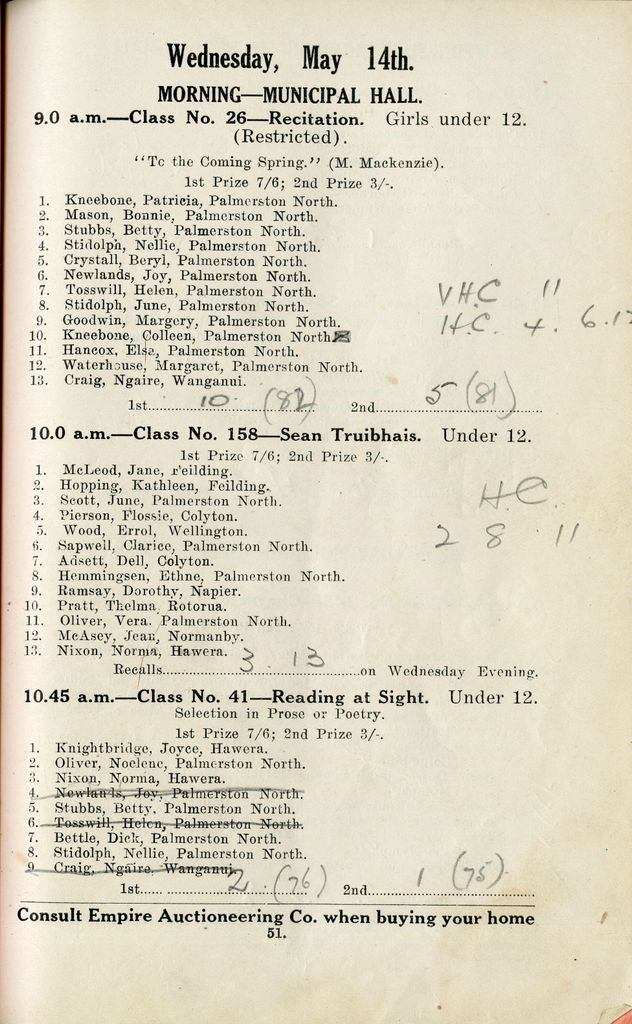 Wednesday, May 14th.
MORNING—MUNICIPAL HALL.
9.0 a.m.—Class No. 26—Recitation. Girls under 12.
(Restricted).
"To the Coming Spring." (M. Mackenzie).
1st Prize 7/6; 2nd Prize 3/-.
1. Kneebone, Patricia, Palmerston North.
2. Mason, Bonnie, Palmerston North.
3. Stubbs, Betty, Palmerston North.
4. Stidolph, Nellie, Palmerston North.
5. Crystall, Beryl, Palmerston North.
6. Newlands, Joy, Palmerston North.
7. Tosswill, Helen, Palmerston North.
VHC 11
8. Stidolph, June, Palmerston North.
9. Goodwin, Margery, Palmerston North.
H.C. 4. 6.
10. Kneebone, Colleen, Palmerston North.
11. Hancox, Elsa, Palmerston North.
12. Waterhouse, Margaret, Palmerston North.
13. Craig, Ngaire, Wanganui.
1st 10 (82) 2nd 5 (81)
10.0 a.m.—Class No. 158—Sean Truibhais. Under 12.
1st Prize 7/6; 2nd Prize 3/-.
1. McLeod, Jane, Feilding.
2. Hopping, Kathleen, Feilding.
3. Scott, June, Palmerston North.
H.C.
4. Pierson, Flossie, Colyton.
5. Wood, Errol, Wellington.
2 8 11
6. Sapwell, Clarice, Palmerston North.
7. Adsett, Dell, Colyton.
8. Hemmingsen, Ethne, Palmerston North.
9. Ramsay, Dorothy, Napier.
10. Pratt, Thelma, Rotorua.
11. Oliver, Vera. Palmerston North.
12. McAsey, Jean, Normanby.
13. Nixon, Norma, Hawera.
Recalls 3 13 on Wednesday Evening.
10.45 a.m.—Class No. 41—Reading at Sight. Under 12.
Selection in Prose or Poetry.
1st Prize 7/6; 2nd Prize 3/-.
1. Knightbridge, Joyce, Hawera.
2. Oliver, Noelene, Palmerston North.
3. Nixon, Norma, Hawera.
4. Newlands, Joy, Palmerston North.
5. Stubbs, Betty, Palmerston North.
6. Tosswill, Helen, Palmerston North.
7. Bettle, Dick, Palmerston North.
8. Stidolph, Nellie, Palmerston North.
9 Craig, Ngaire, Wanganui.
1st 2 (76) 2nd 1 (75)
Consult Empire Auctioneering Co. when buying your home
51.